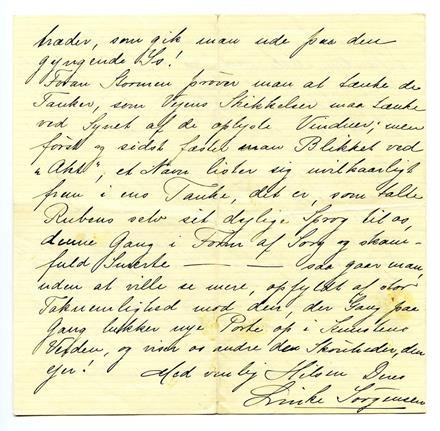 bræder, som gik man ude paa den
gyngende Is!
Foran Stormen prøver man at tænke de
Tanker, som Vejens Skikkelser maa tænke
ved Synet af de oplyste Vinduer; men
først og sidst fæster man Blikket ved
"Akt", et Navn lister sig uvilkaarligt
frem i ens Tanke, det er, som talte
Rubens selv sit dejlige Sprog til os,
denne Gang i Form af Sorg og skam-
fuld Smerte — — saa gaar man,
uden at ville se mere, opfyldt af stor
Taknemlighed mod den, der Gang paa
Gang lukker nye Porte op i Kunstens
Verden, og viser os andre de Skønheder, den
ejer!
Med venlig Hilsen Deres
Sørgensen